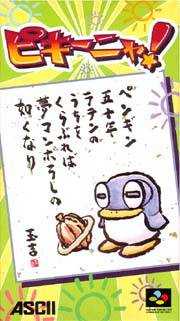 ピキーニャ!
ペンギン
五十年
テテンの
うちを
くらぶれは
夢マンボろしの
如くなり
玉吉
ASCII